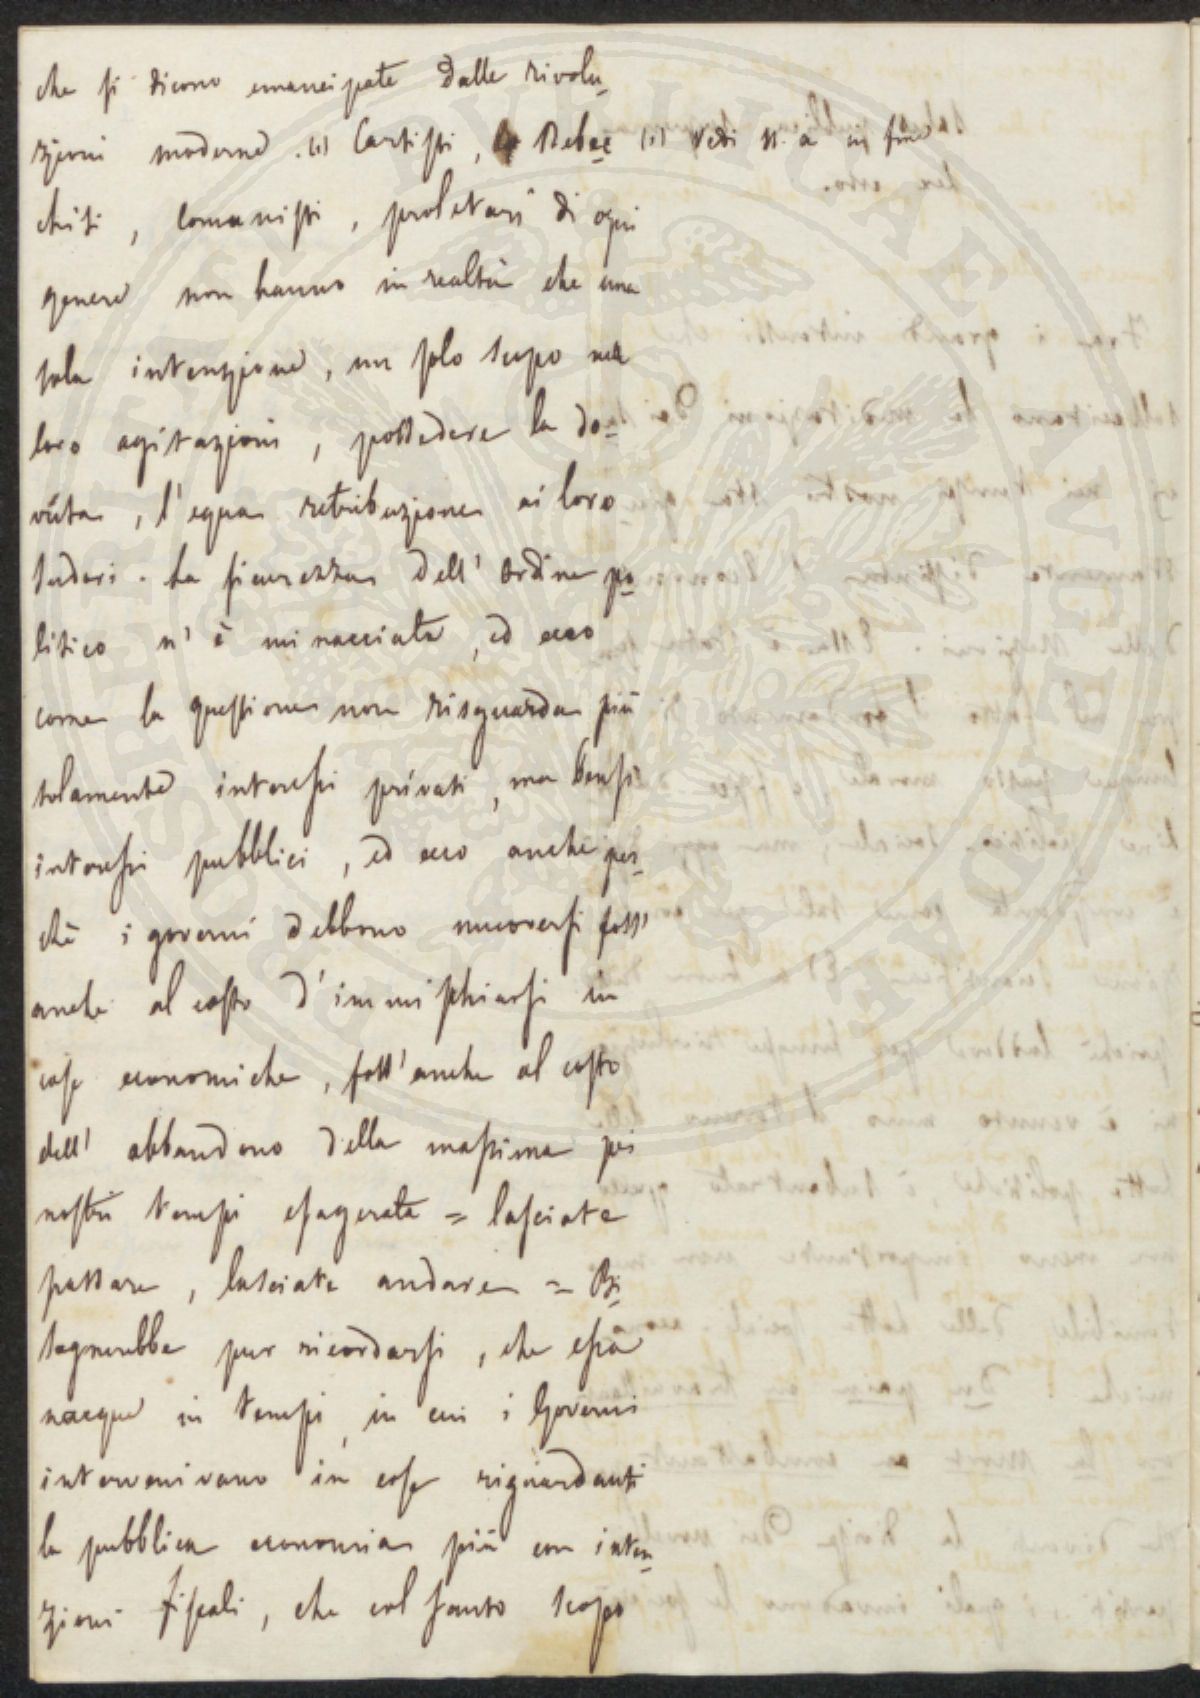 che si dicono emancipate dalle rivolu-
zioni moderne. (1) Cartisti, Rebec
chiti, Comunisti, proletarj di ogni
genere non hanno in realtà che una
sola intenzione, un solo scopo nelle
loro agitazioni, possedere la do-
vuta, l'equa retribuzione ai loro
sudori. La sicurezza dell'ordine po
litico n'è minacciata, ed ecco
come la questione non risguarda più
solamente interessi privati, ma bensì
interessi pubblici, ed ecco anche per-
chè i governi debbono muoversi foss'
anche al costo d'immischiarsi in
cose economiche, foss'anche al costo
dell'abbandono della massima pei
nostri tempi esagerata = lasciate
passare, lasciate andare = Bi-
sognerebbe pur ricordarsi, che essa
nacque in tempi, in cui i Governi
intervenivano in cose riguardanti
la pubblica economia più con inten-
zioni fiscali, che col santo scopo
(1) Vedi N. a in fine
PVBLICAE AVGENDAE